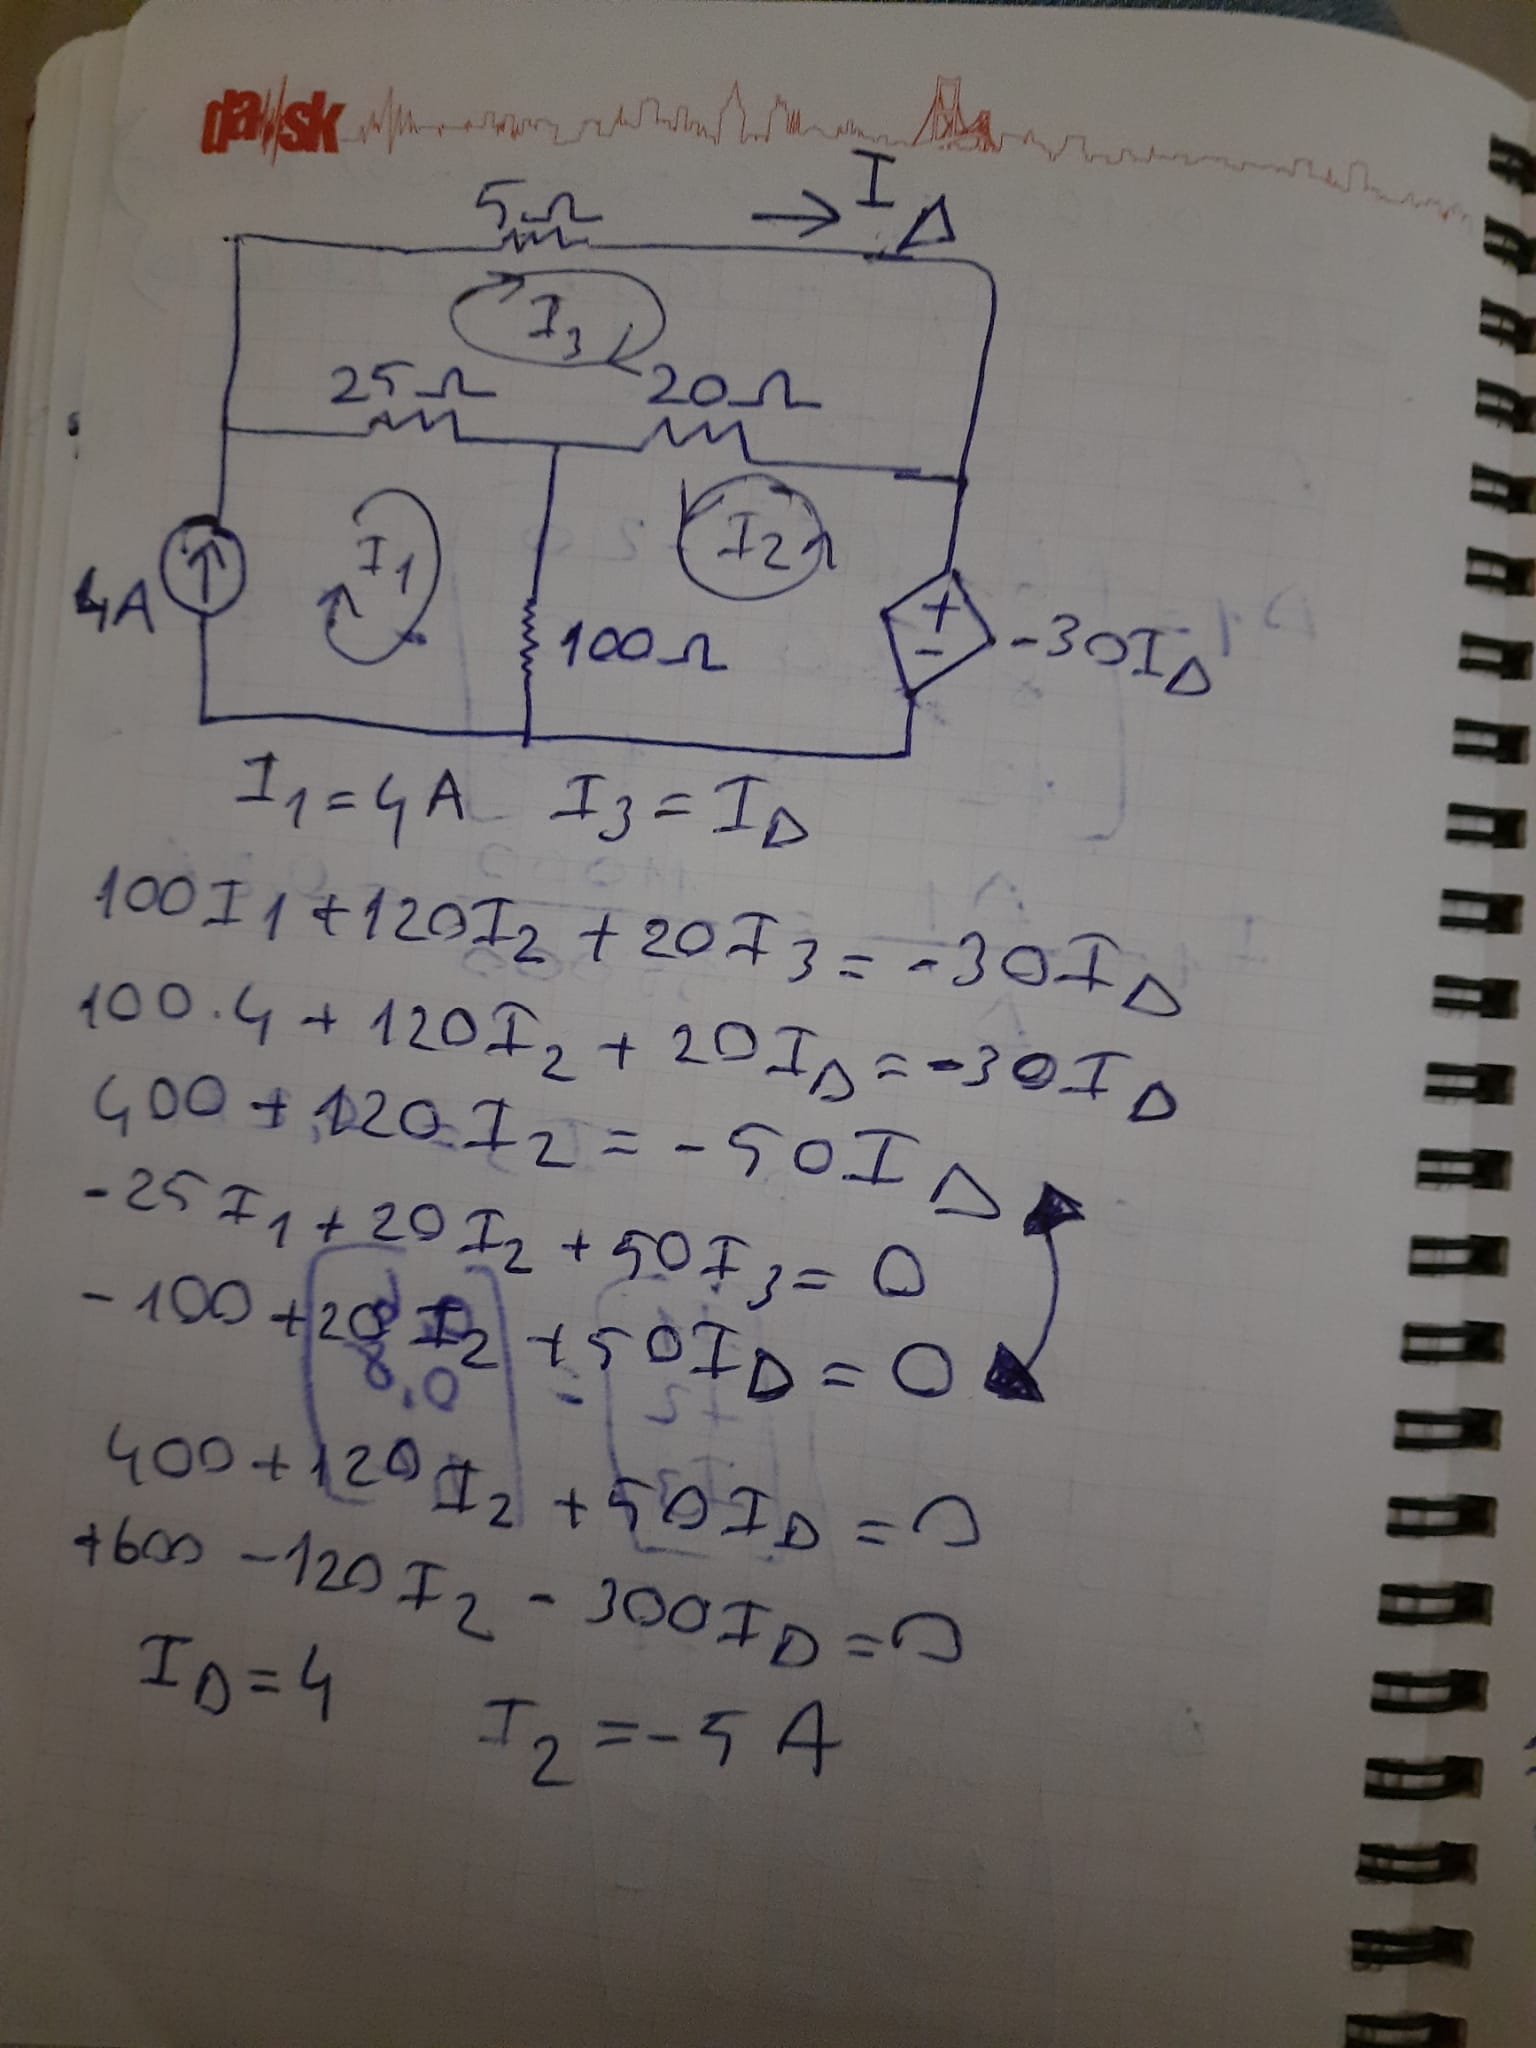 da sk
5Ω → I Δ
I3
25Ω 20Ω
I1 I2
4A 100Ω + - -30IΔ
I1 = 4A I3 = IΔ
100I1 + 120I2 + 20I3 = -30IΔ
100.4 + 120I2 + 20IΔ = -30IΔ
400 + 120I2 = -50IΔ
-25I1 + 20I2 + 50I3 = 0
-100 + 20I2 + 50IΔ = 0
400 + 120I2 + 50IΔ = 0
+600 - 120I2 - 300IΔ = 0
IΔ = 4 I2 = -5 A